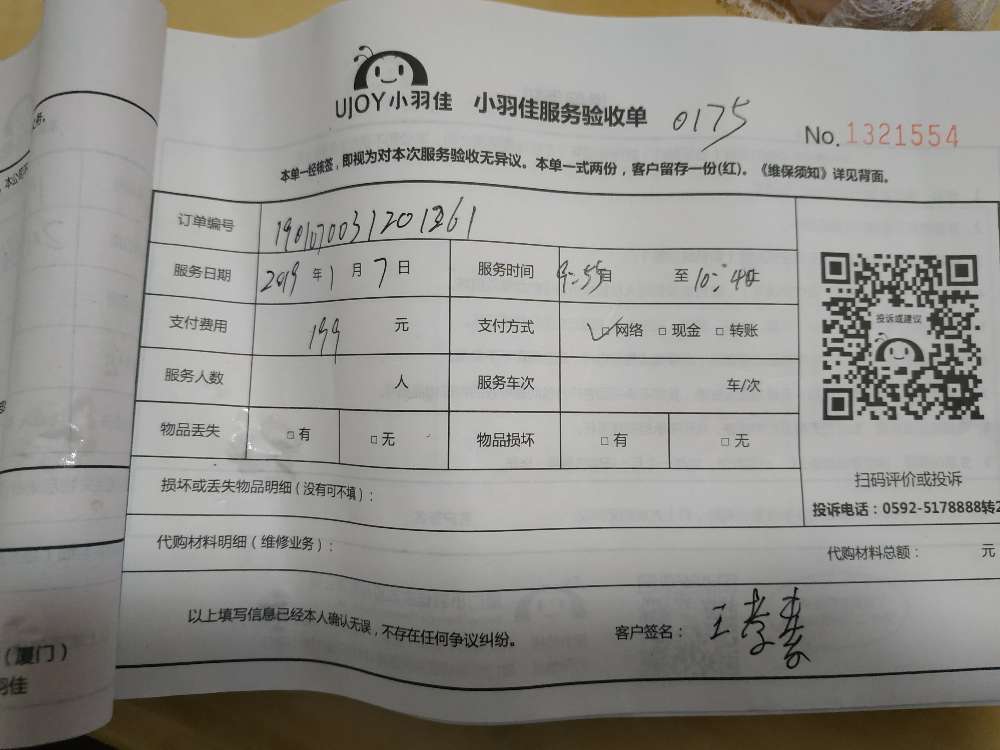 UJOY小羽佳 小羽佳服务验收单 0175 No. 1321554
本单一经核签，即视为对本次服务验收无异议。本单一式两份，客户留存一份(红)。《维保须知》详见背面。
订单编号
服务日期 2019 年 1 月 7 日 服务时间 9:55 自 至 10:40 止
支付费用 199 元 支付方式 ✓□网络 □现金 □转账
服务人数 人 服务车次 车/次
物品丢失 □有 □无 物品损坏 □有 □无
投诉或建议
扫码评价或投诉
投诉电话：0592-5178888转2
损坏或丢失物品明细（没有可不填）：
代购材料明细（维修业务）： 代购材料总额： 元
以上填写信息已经本人确认无误，不存在任何争议纠纷。 客户签名： 王
（厦门）
羽佳